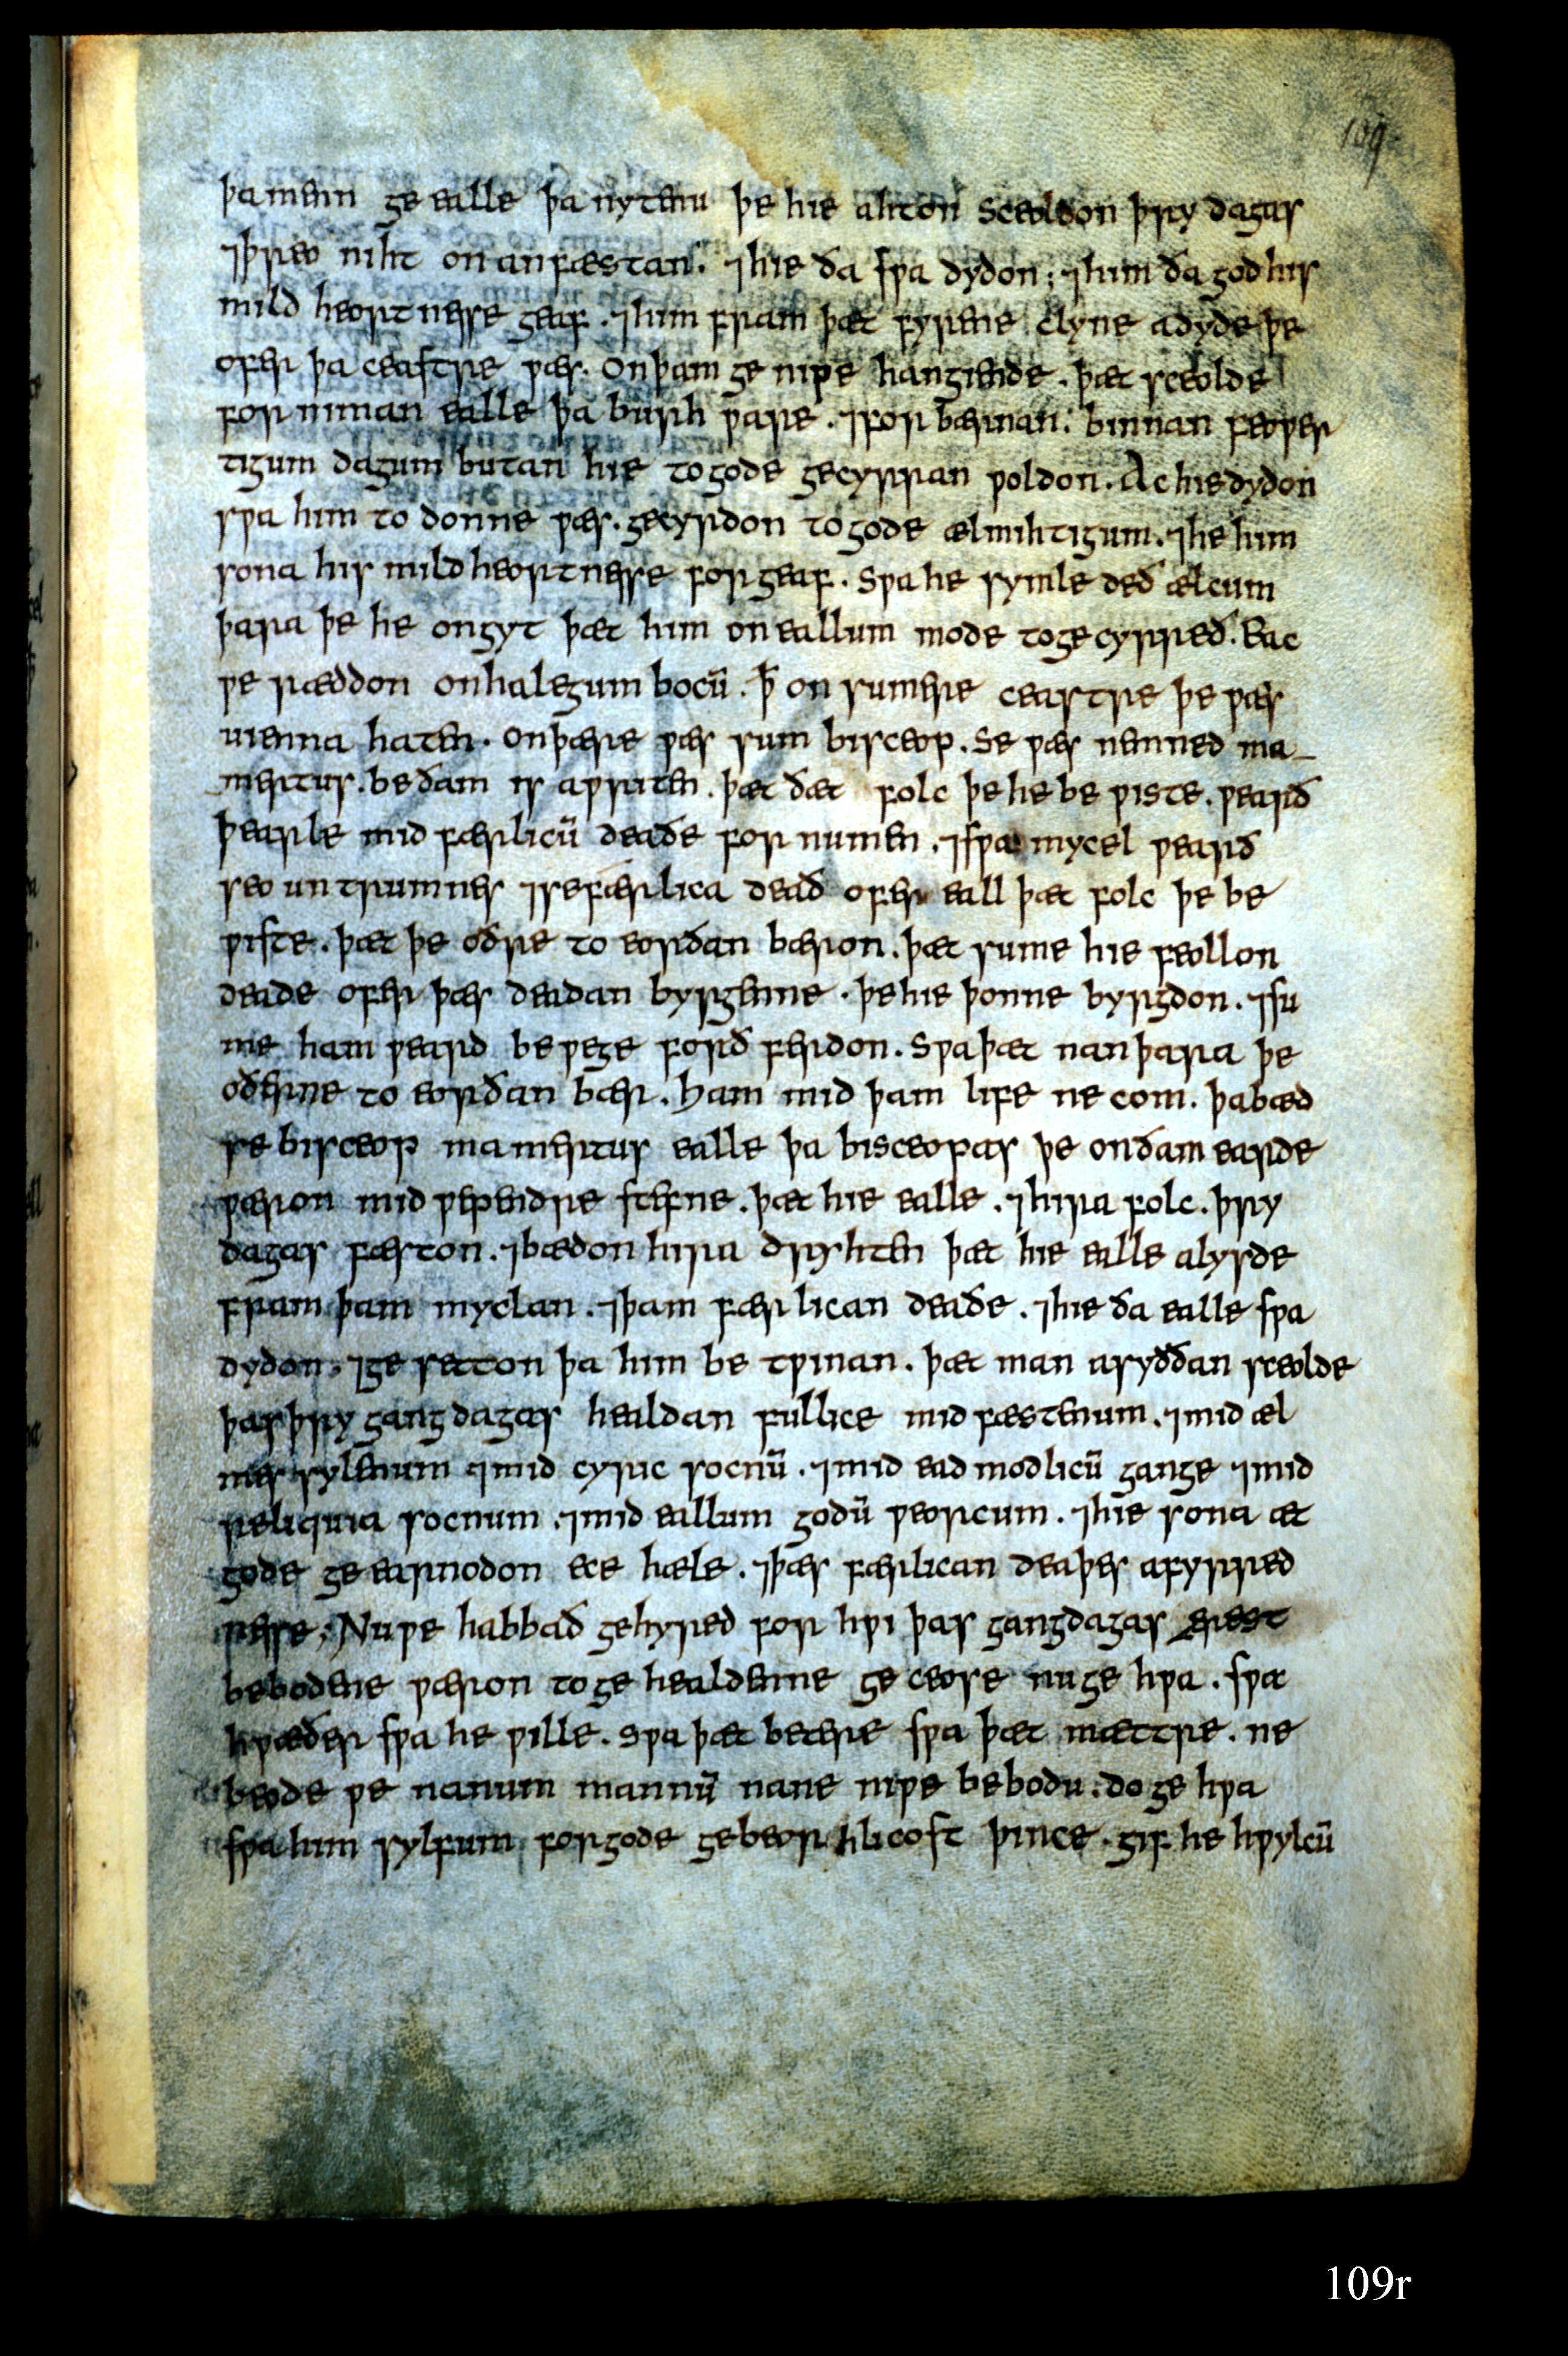 109
þa menn ge ealle þa nytenu þe hie ahton sceoldon þry dagas
⁊ þreo niht on an fæstan. ⁊ hie ða swa dydon; ⁊ him ða god his
mildheortnesse geaf. ⁊ him fram þæt fyrene clyne adyde þe
ofer þa ceastre wæs. on þam genipe hangiende. þæt sceolde
forniman ealle þa burhware. ⁊ forbærnan. binnan feower
tigum dagum butan hie to gode gecyrran woldon. Ac hie dydon
swa him to donne wæs. gecyrdon to gode ælmihtigum. ⁊ he him
sona his mildheortnesse forgeaf. Swa he symle deð ælcum
þara þe he ongyt þæt him on eallum mode to gecyrreð. Eac
we ræddon on halegum bocū. ꝥ on sumere ceastre þe wæs
uienna haten. on þære wæs sum bisceop. Se wæs nenned ma-
mertus. be ðam is awriten. þæt ðæt folc þe he bewiste. wearð
þearle mid færlicū deaðe fornumen. ⁊ swa mycel wearð
seo untrumnes ⁊ se færlica deað ofer eall þæt folc þe be
wiste. þæt þe oðre to eorðan bæron. þæt sume hie feollon
deade ofer þæs deadan byrgenne. þe hie þonne byrgdon. ⁊ su
me ham weard be wege forð ferdon. Swa þæt nan þara þe
oðerne to eorðan bær. ham mid þam life ne com. þa bæd
se bisceop mamertus ealle þa bisceopas þe on ðam earde
wæron mid wependre stefne. þæt hie ealle. ⁊ hira folc. þry
dagas fæston. ⁊ bædon hira dryhten þæt hie ealle alysde
fram þam myclan. ⁊ þam færlican deaðe. ⁊ hie ða ealle swa
dydon. ⁊ gesetton þa him betwinan. þæt man asyððan sceolde
þas þry gangdagas healdan fullice mid fæstenum. ⁊ mid æl
messylenum ⁊ mid cyricsocnū. ⁊ mid eadmodlicū gange ⁊ mid
reliquia socnum. ⁊ mid eallum godū weorcum. ⁊ hie sona æt
gode geearnodon ece hæle. ⁊ þæs færlican deaþes afyrred
nesse; Nu we habbað gehyred for hwi þas gangdagas ærest
bebodene wæron to gehealdenne geceose nu gehwa. swa
hwæðer swa he wille. swa þæt betere swa þæt mættre. ne
beode we nanum mannū nane niwe bebodu. do gehwa
swa him sylfum for gode gebeorhlicost þince. gif he hwylcū
109r